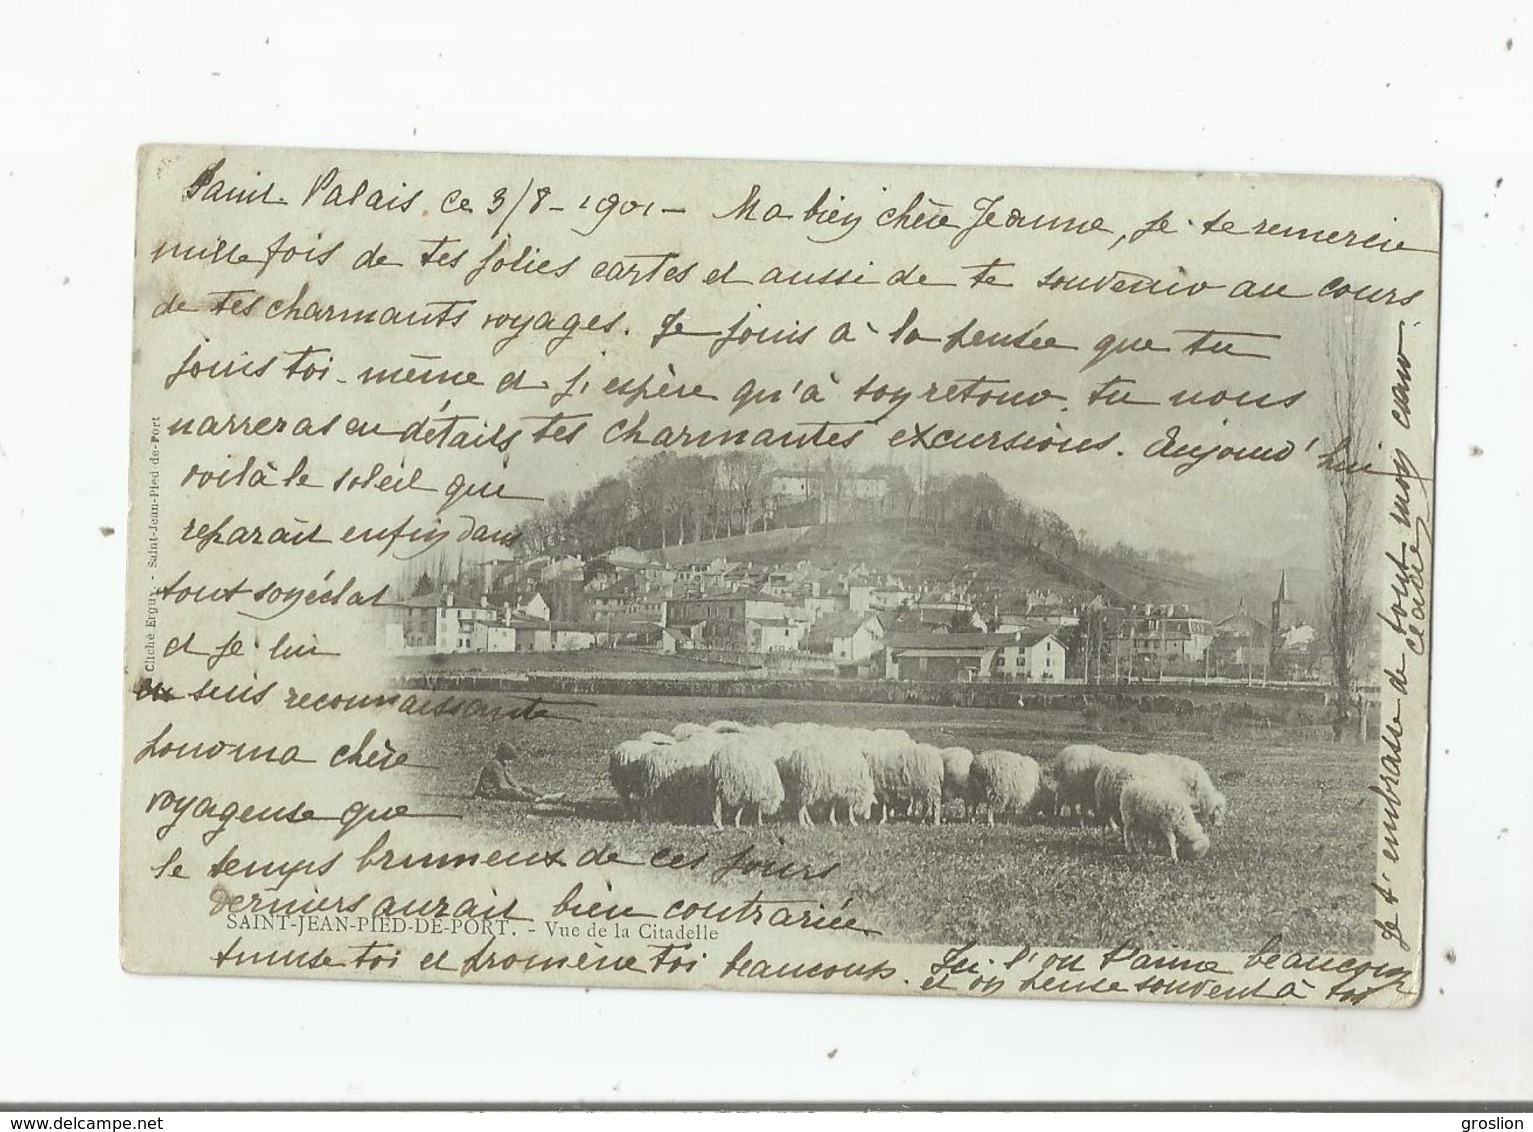 Saint-Palais, ce 3/8-1901 - Ma bien chère Jeanne, je te remercie
mille fois de tes jolies cartes et aussi de te souvenir au cours
de tes charmants voyages. Je jouis à la pensée que tu
jouis toi-même et j'espère qu'à ton retour tu nous
narreras en détails tes charmantes excursions. Aujourd'hui
voilà le soleil qui
reparait enfin dans
tout son éclat
et je lui
suis reconnaissante
pour ma chère
voyageuse que
le temps brumeux de ces jours
derniers aurait bien contrariée
SAINT-JEAN-PIED-DE-PORT. - Vue de la Citadelle
Amuse toi et promène toi beaucoup. Ici l'on t'aime beaucoup
et on pense souvent à toi
Je t'embrasse de tout mon cœur
Claire
Cliché Erguy - Saint-Jean-Pied-de-Port
www.delcampe.net
groslion